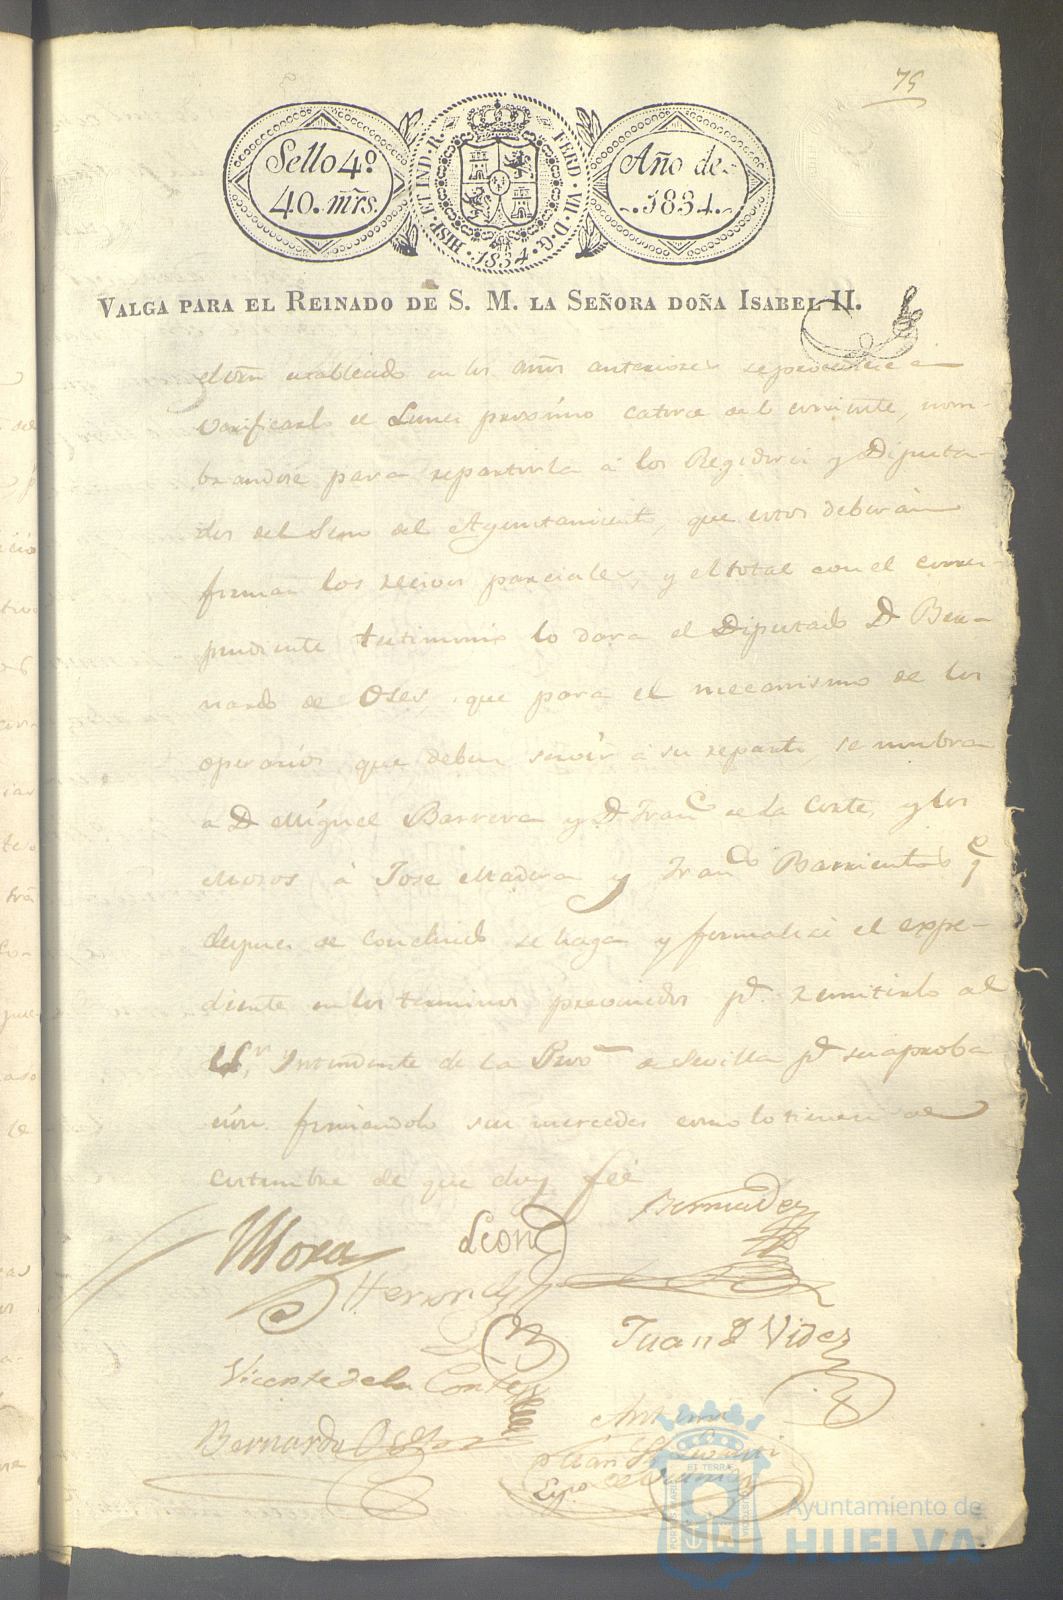 75
Sello 4.º
40. mrs.
HISP. ET IND. R.
FERD. VII. D. G.
1834.
Año de
1834.
VALGA PARA EL REINADO DE S. M. LA SEÑORA DOÑA ISABEL II.
el orn establecido en los años anteriores se procederá á
verificarlo el Lunes procsimo catorce del corriente, nom-
brandose para repartirla á los Regidores y Diputa-
dos del Seno del Ayuntamiento, que estos deberán
firmar los recivos parciales, y el total con el corres-
pondiente testimonio lo dara el Diputado D. Ber-
nardo de Oses, que para el mecanismo de los
operarios que deben servir á su reparto, se nombra
a D. Miguel Barrera y D. Franco. de la Corte, y los
Mozos á Jose Madera y Franco. Barrientos y
despues de concluido se haga y formalice el expe-
diente en los terminos prevenidos pa. remitirlo al
Sr. Yntendente de la Prova. de Sevilla pa. su aproba
cion firmandolo sus mercedes como lo tienen de
costumbre de que doy fee
Mora
Leon
Bermudez
Hernandez
Juan D. Videz
Vicente de la Corte
Bernardo Oses
Antemi
PORTUS MARIS
ET TERRAE
CUSTODIA
Ayuntamiento de
HUELVA